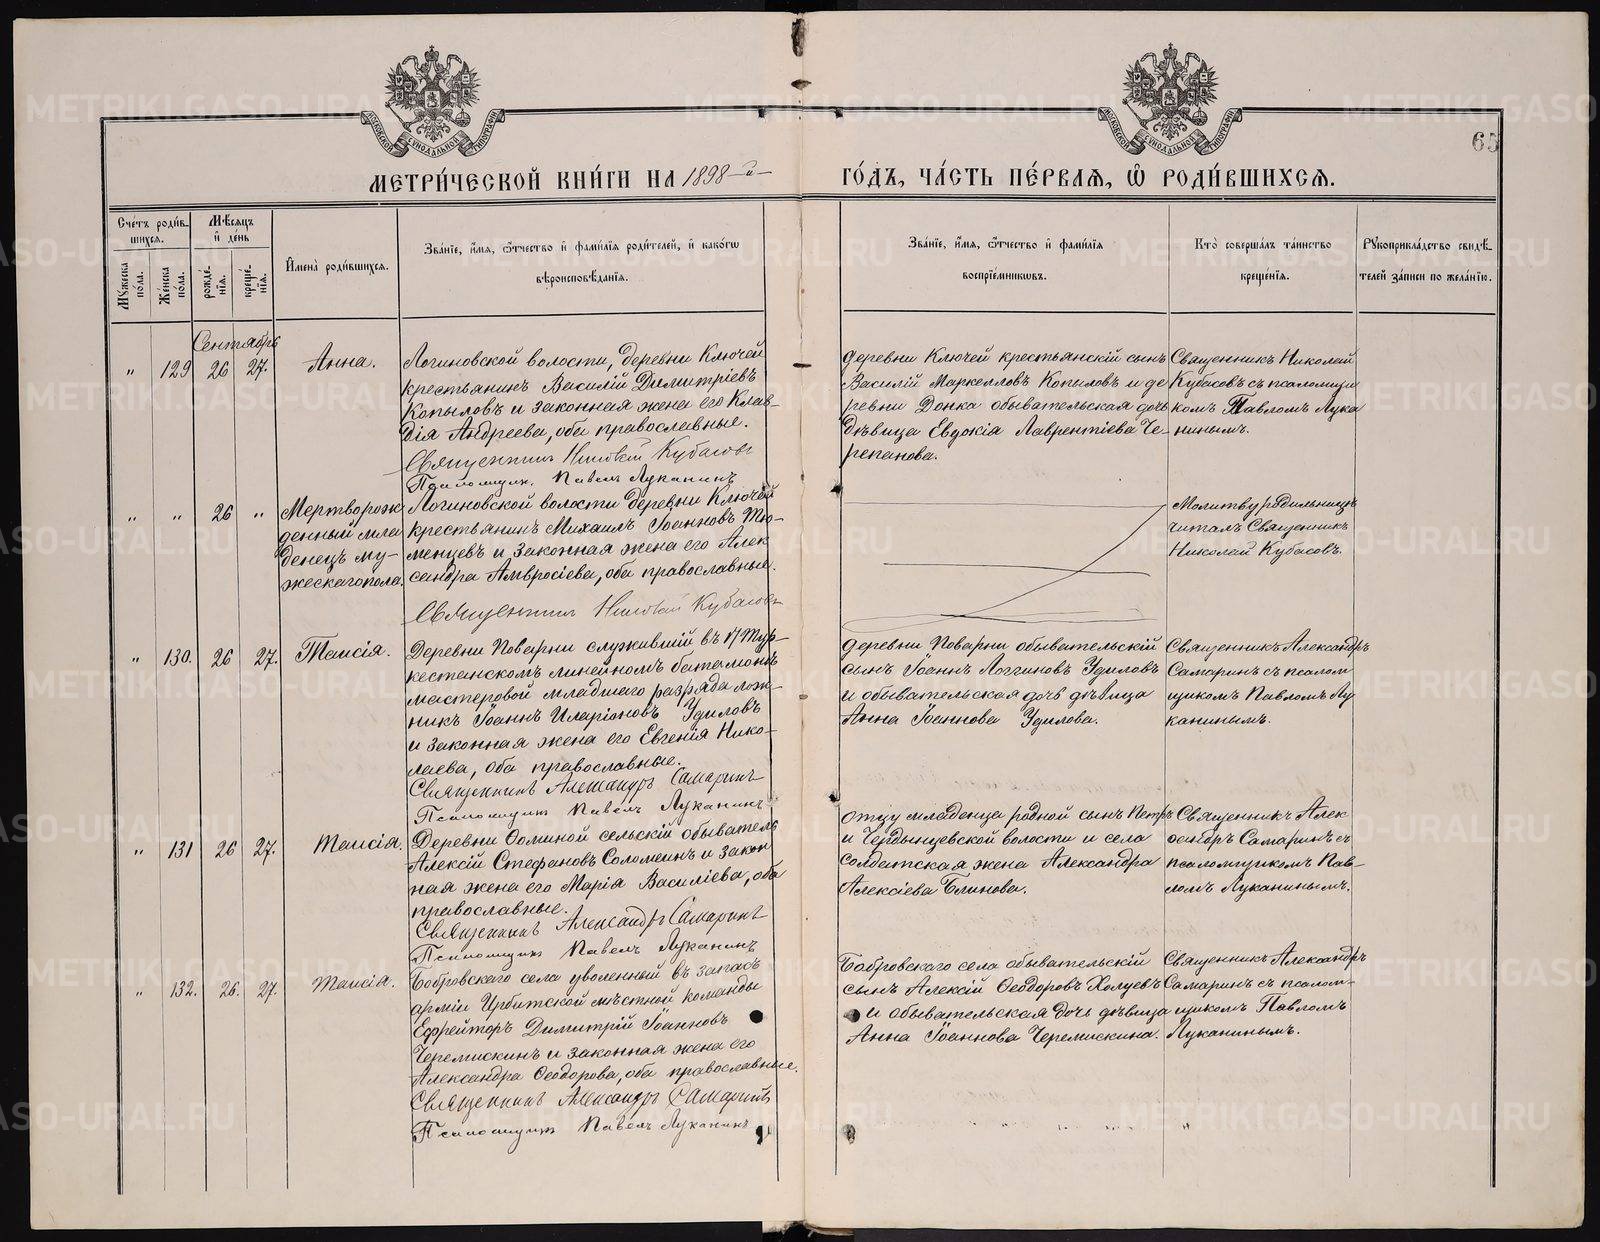 65
МЕТРИ́ЧЕСКОЙ КНИ́ГИ НА 1898-й-
ГО́ДЪ, ЧА́СТЬ ПЕ́РВАЯ, Ѽ РОДИ́ВШИХСЯ.
Сче́тъ роди́в-
шихся.
Мѣ́сяцъ
и҆ день
Мꙋ́жеска по́ла.
Же́нска по́ла.
рожде́-
нїя.
креще́-
нїя.
И҆мена̀ роди́вшихся.
Зва́нїе, и҆́мя, ѻ҆́тчество и҆ фами́лїя роди́телей, и҆ како́гѡ
вѣроисповѣ́данїя.
Зва́нїе, и҆́мя, ѻ҆́тчество и҆ фами́лїя
воспрїе́мниковъ.
Кто̀ соверша́лъ та́инство
креще́нїя.
Рꙋкоприкла́дство свидѣ́-
телей за́писи по жела́нїю.
Сентябрь
„ 129 26 27. Анна.
Логиновской волости, деревни Ключей
крестьянинъ Василій Димитріевъ
Копыловъ и законная жена его Клав-
дія Андреева, оба православные.
Священникъ Николай Кубасовъ
Псаломщикъ Павелъ Луканинъ
деревни Ключей крестьянскій сынъ
Василій Маркелловъ Копыловъ и де
ревни Донка обывательская дочь
дѣвица Евдокія Лаврентіева Че-
репанова.
Священникъ Николай
Кубасовъ съ псаломщи
комъ Павломъ Лука
нинымъ.
„ „ 26 „
Мертворож
денный мла
денецъ му-
жескаго пола.
Логиновской волости деревни Ключей
крестьянинъ Михаилъ Іоанновъ Тю-
менцевъ и законная жена его Алек
сандра Амвросіева, оба православные.
Священникъ Николай Кубасовъ
Молитву родильницѣ
читалъ Священникъ
Николай Кубасовъ.
„ 130. 26 27. Таисія.
Деревни Поварни служившій въ 17 Тур-
кестанскомъ линейномъ баталіонѣ
мастеровой младшаго разряда лож-
никъ Іоаннъ Иларіоновъ Удиловъ
и законная жена его Евгенія Нико-
лаева, оба православные.
Священникъ Александръ Самаринъ
Псаломщикъ Павелъ Луканинъ
деревни Поварни обывательскій
сынъ Іоаннъ Логгиновъ Удиловъ
и обывательская дочь дѣвица
Анна Іоаннова Удилова.
Священникъ Александръ
Самаринъ съ псалом
щикомъ Павломъ Лу
канинымъ.
„ 131 26 27. Таисія.
Деревни Ѳоминой сельскій обыватель
Алексій Стефановъ Соломеинъ и закон
ная жена его Марія Василіева, оба
православные.
Священникъ Александръ Самаринъ
Псаломщикъ Павелъ Луканинъ
отцу младенца родной сынъ Петръ
и Чердынцевской волости и села
солдатская жена Александра
Алексіева Блинова.
Священникъ Алек
сандръ Самаринъ съ
псаломщикомъ Пав-
ломъ Луканинымъ.
„ 132. 26. 27. Таисія.
Бобровскаго села уволенный въ запасъ
арміи Ирбитской мѣстной команды
Ефрейторъ Димитрій Іоанновъ
Черемискинъ и законная жена его
Александра Ѳеодорова, оба православные.
Священникъ Александръ Самаринъ
Псаломщикъ Павелъ Луканинъ
Бобровскаго села обывательскій
сынъ Алексій Ѳеодоровъ Холуевъ
и обывательская дочь дѣвица
Анна Іоаннова Черемискина.
Священникъ Александръ
Самаринъ съ псалом-
щикомъ Павломъ
Луканинымъ.